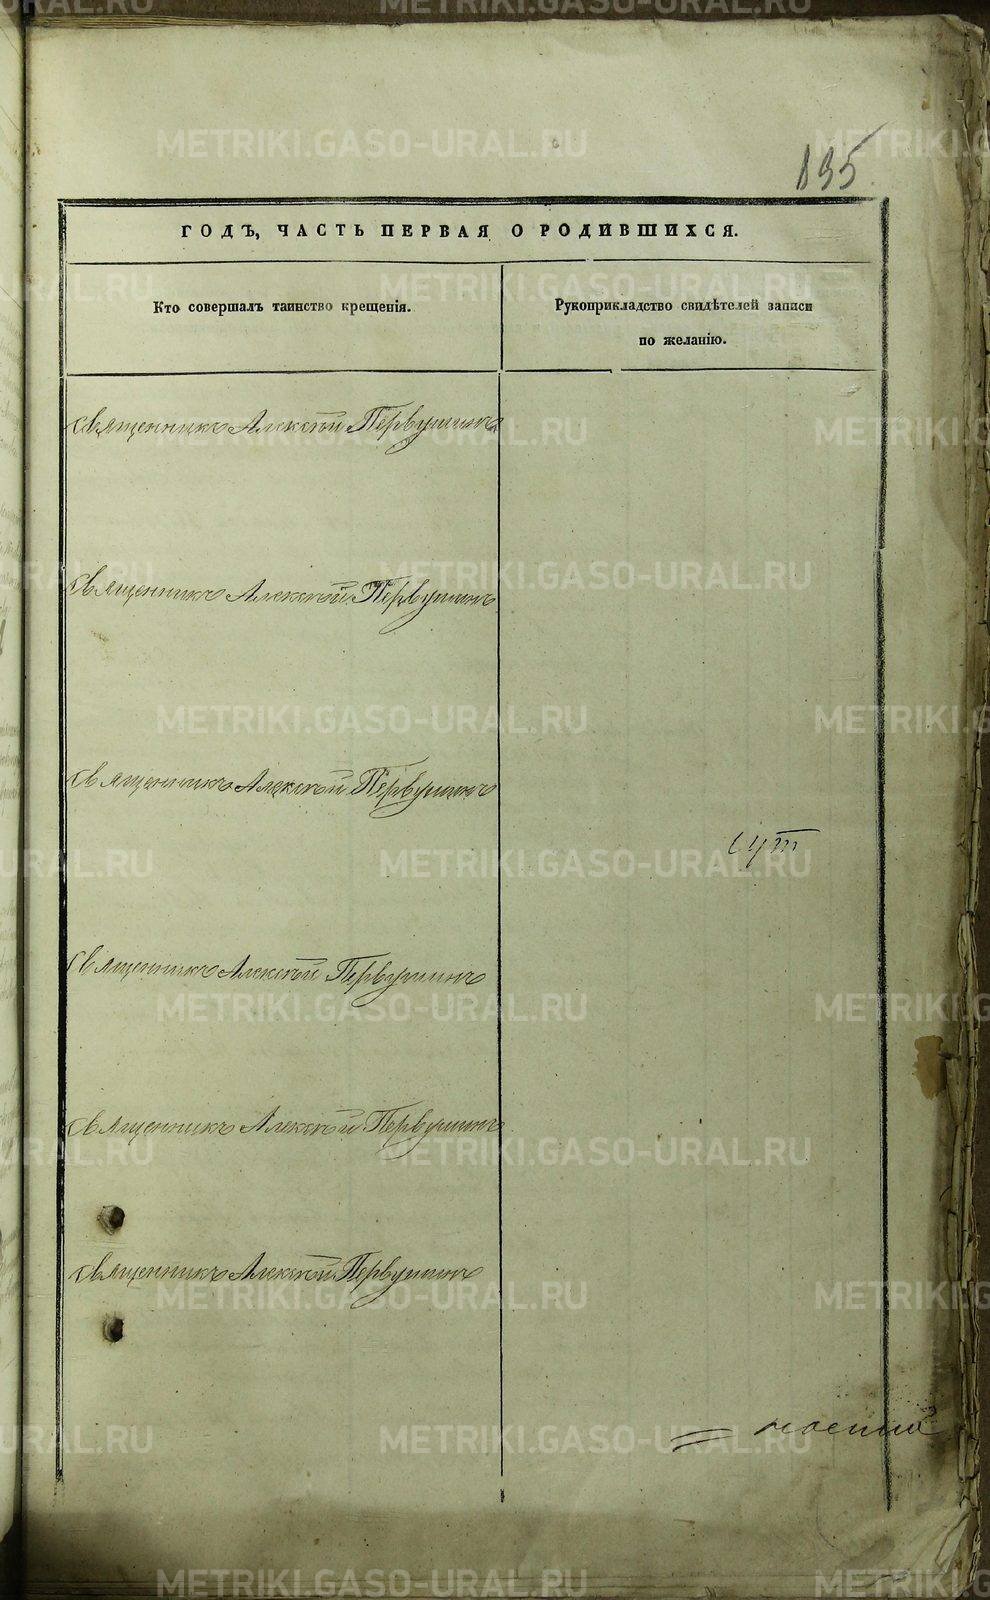 195
ГОДЪ, ЧАСТЬ ПЕРВАЯ О РОДИВШИХСЯ.
Кто совершалъ таинство крещенія.
Рукоприкладство свидѣтелей записи
по желанію.
Священникъ Алексѣй Первушинъ
Священникъ Алексѣй Первушинъ
Священникъ Алексѣй Первушинъ
Священникъ Алексѣй Первушинъ
Священникъ Алексѣй Первушинъ
Священникъ Алексѣй Первушинъ
METRIKI.GASO-URAL.RU